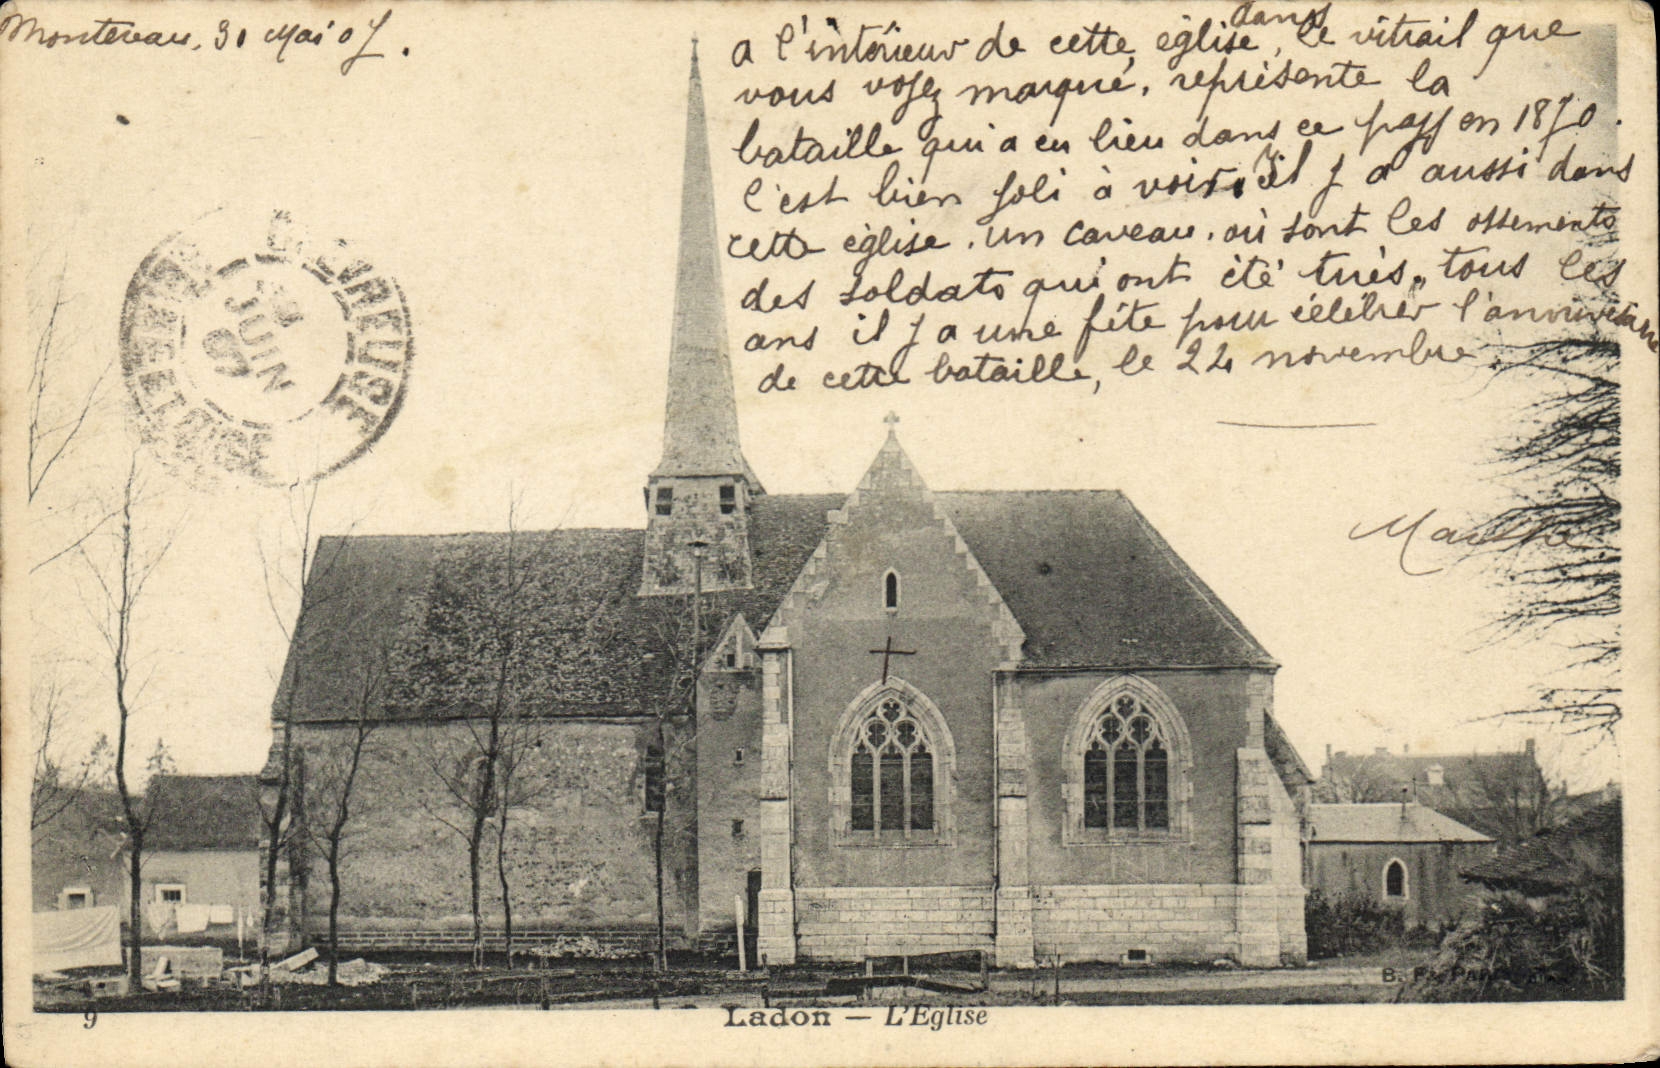 Montereau, 31 Mai 07.
dans
a l'intérieur de cette église, le vitrail que
vous voyez marqué, représente la
bataille qui a eu lieu dans ce pays en 1870.
C'est bien joli à voir. Il y a aussi dans
cette église. un caveau. où sont les ossements
des soldats qui ont été tués, tous les
ans il y a une fête pour célébrer l'anniversaire
de cette bataille, le 24 novembre.
Marthe
CHEVREUSE
JUIN
07
B. F. PARIS
9
Ladon — L'Eglise